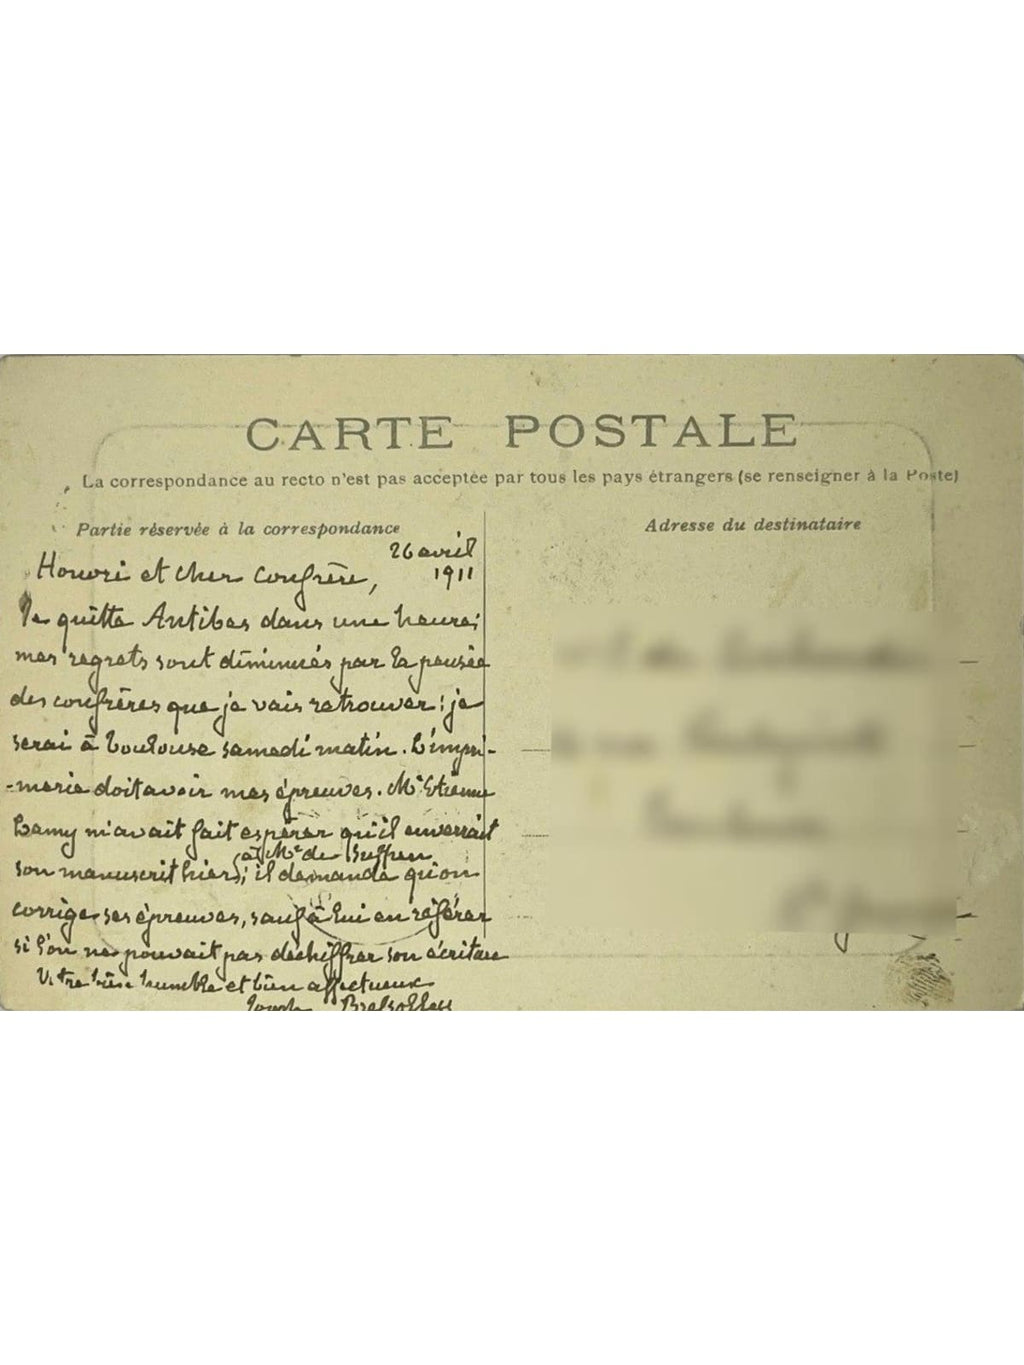 CARTE POSTALE
La correspondance au recto n'est pas acceptée par tous les pays étrangers (se renseigner à la Poste)
Partie réservée à la correspondance
Adresse du destinataire
26 avril
1911
Honoré et cher confrère,
Je quitte Antibes dans une heure;
mes regrets sont diminués par la pensée
des confrères que je vais retrouver: je
serai à Toulouse samedi matin. L'impri-
-merie doit avoir mes épreuves. Mr Etienne
Lamy m'avait fait espérer qu'il enverrait
à Mr de Suffren
son manuscrit hier; il demande qu'on
corrige ses épreuves, sauf à lui en référer
si l'on ne pouvait pas déchiffrer son écriture
Votre bien humble et bien affectueux
Joseph